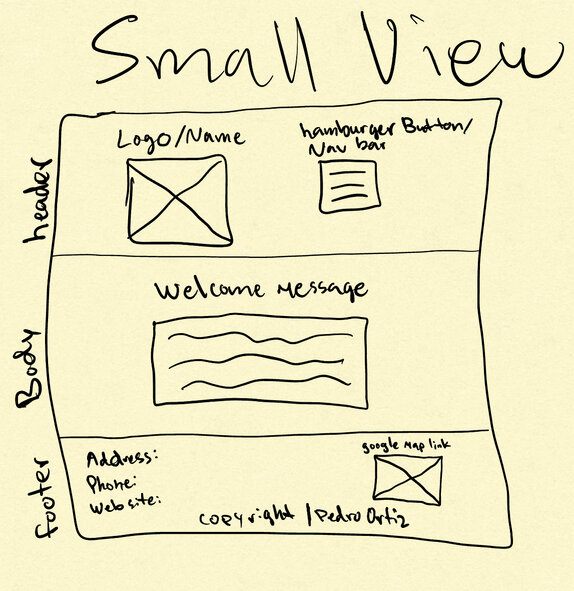 Small View
header
Logo/Name
hamburger Button/
Nav bar
Body
Welcome Message
footer
Address:
Phone:
Website:
google Map link
copyright / Pedro Ortiz